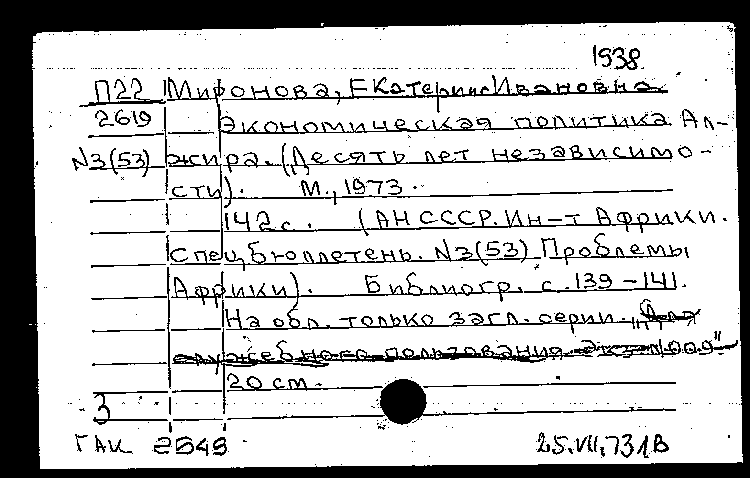 1938
П22 Миронова, Екатерина Ивановна
2619 Экономическая политика Ал-
N3(53) жира. (Десять лет независимо-
сти). М., 1973.
142 с. (АН СССР. Ин-т Африки.
Спец. бюллетень. N3(53) Проблемы
Африки). Библиогр. с. 139-141.
На обл. только загл. серии. "Для
служебного пользования
20 см.
3
ГАК 2549 25.VII.73